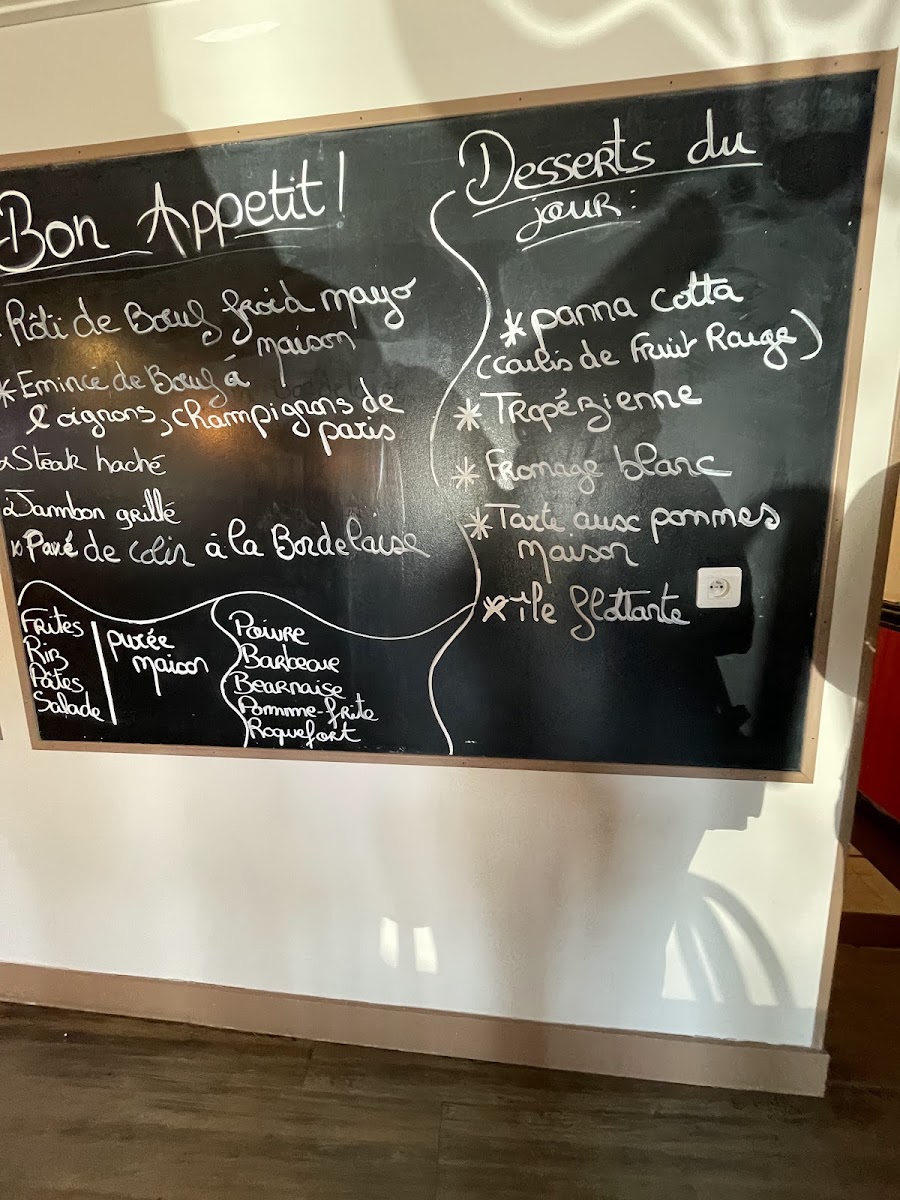 Bon Appetit!
Rôti de Boeuf froid mayo
maison
* Emince de Boeuf à
l'oignons, champignons de
paris
Steak haché
Jambon grillé
* Pavé de colin à la Bordelaise
Frites
Riz
Pâtes
Salade
purée
maison
Poivre
Barbecue
Bearnaise
Pomme-frite
Roquefort
Desserts du
jour:
* panna cotta
(coulis de Fruit Rouge)
* Tropézienne
* Fromage blanc
* Tarte aux pommes
maison
* île flottante